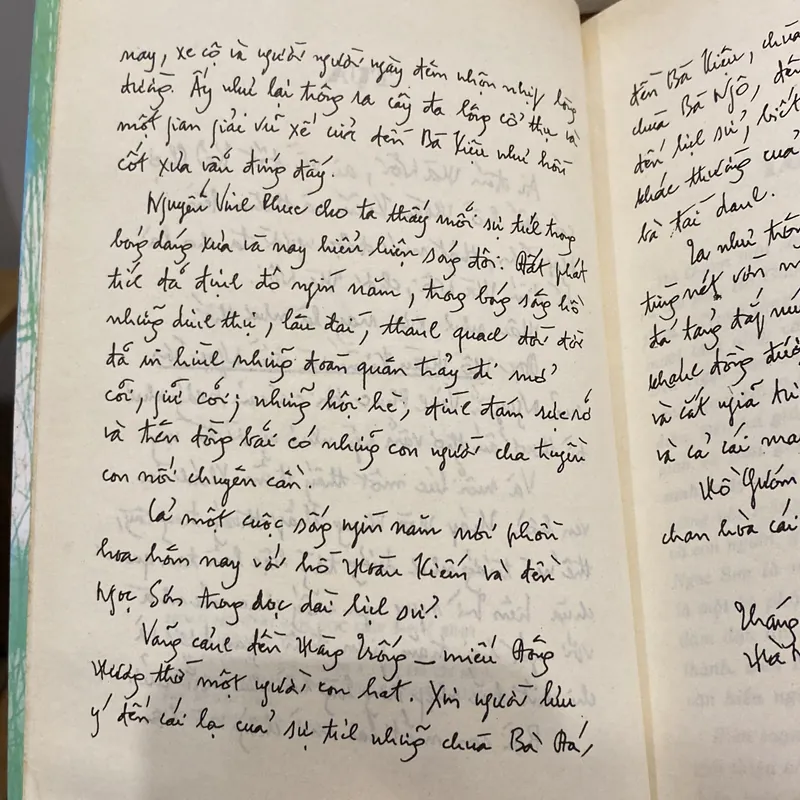 nay, xe cộ và người người ngày đêm nhộn nhịp lòng
đường. Ấy như lại trông ra cây đa lông cổ thụ và
một gian giải vũ xế cửa đền Bà Kiệu như hồn
cốt xưa vẫn đứng đấy.
Nguyễn Vinh Phúc cho ta thấy mỗi sự tích trong
bóng dáng xưa và nay hiển hiện sóng đôi. Đất phát
tích đã định đô nghìn năm, trong bóng sóng hồ
những dinh thự, lâu đài, thành quách đời đời
đã in hình những đoàn quân trẩy đi mở
cõi, giữ cõi; những hội hè, đình đám
và trên đồng bãi có những con người cha truyền
con nối chuyên cần.
Cả một cuộc sống nghìn năm nơi phồn
hoa hôm nay với hồ Hoàn Kiếm và đền
Ngọc Sơn trong dọc dài lịch sử.
Vãng cảnh đền Hàng Trống - miếu Đông
Hương thờ một người con hát. Xin người lưu
ý đến cái lạ của sự tích những chùa Bà Đá,
đền Bà Kiệu, chùa
chùa Bà Ngô, đền
đến lịch sử, biết
khác thường của
bà tài danh.
từng nét vốn
đã tang
và cắt nghĩa từ
và cả cái
Hồ Gươm
chan hòa cái
Tháng
Hà